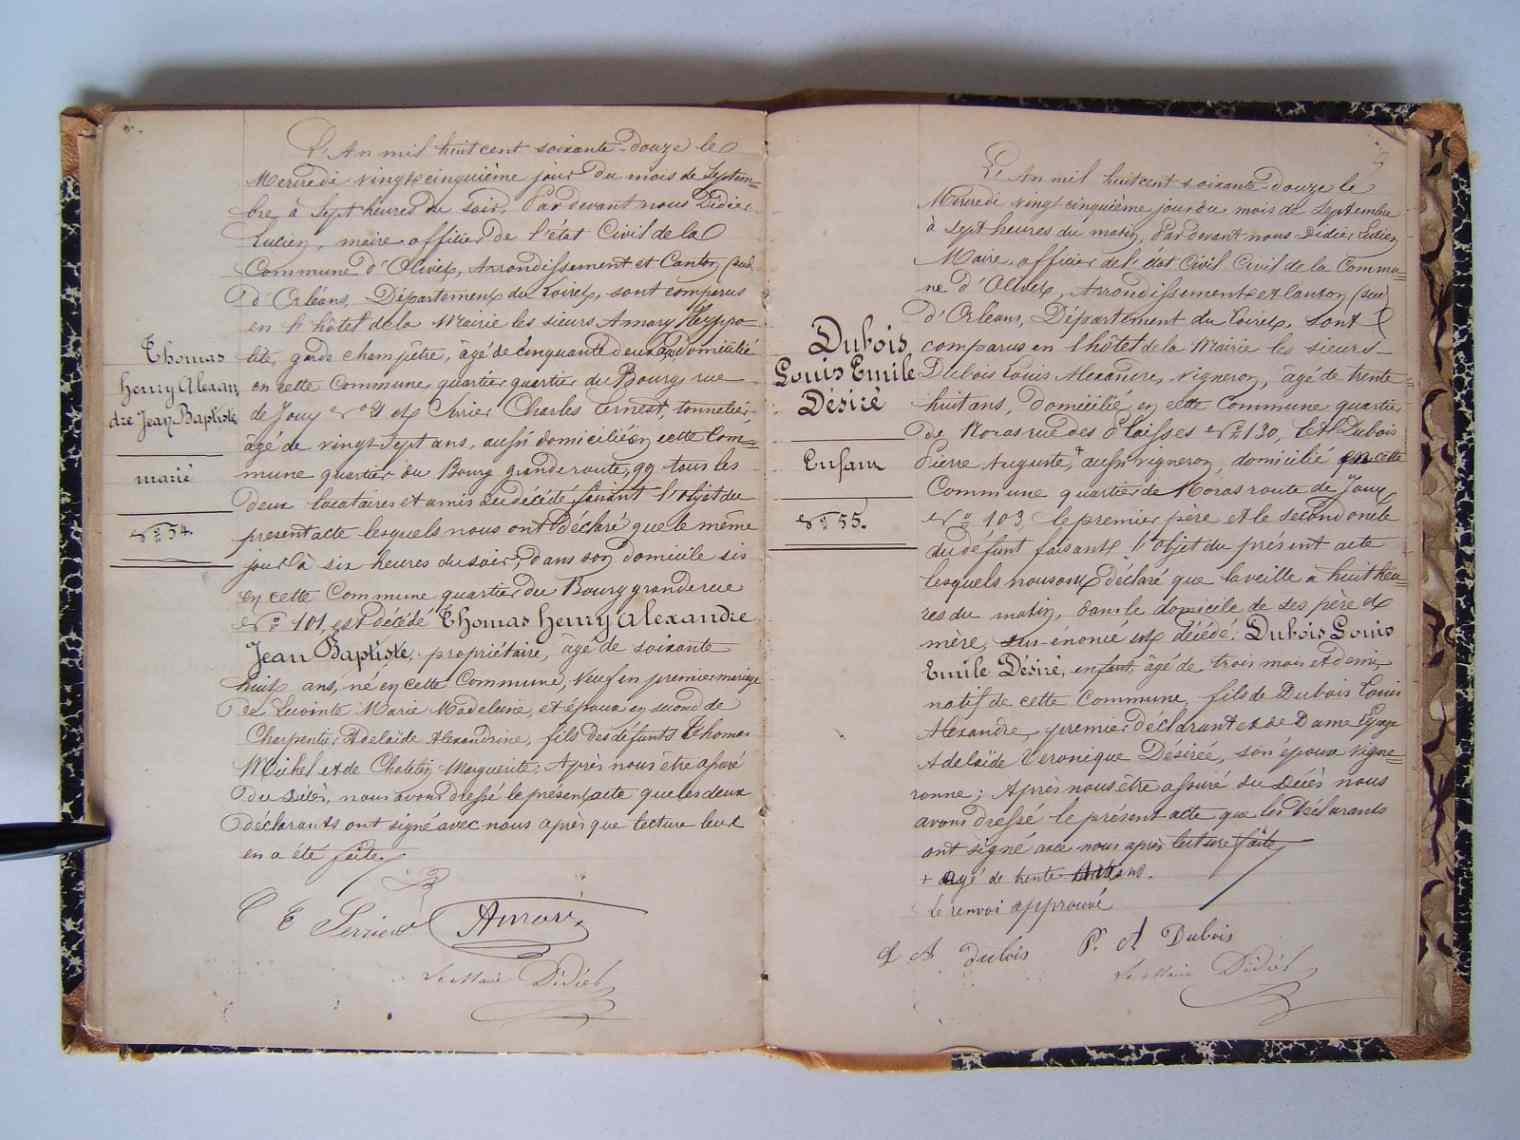 L'An mil huit cent soixante-douze le
Mercredi vingt cinquième jour du mois de Septem=
bre, à Sept heures du soir, Par devant nous Didier
Lucien, maire officier de l'état Civil de la
Commune d'Olivet, Arrondissement et Canton (sud)
d'Orléans, Département du Loiret, sont comparus
en l'hôtel de la Mairie les sieurs Amary Hyppo-
lite, garde champêtre, âgé de cinquante deux ans domicilié
en cette Commune quartier quartier du Bourg, rue
de Jouy et Serrier Charles Ernest, tonnelier
âgé de vingt Sept ans, aussi domicilié en cette Com=
mune quartier du Bourg grande route, 99 tous les
deux locataires et amis du décédé faisant l'objet du
present acte lesquels nous ont déclaré que le même
jour à six heures du soir, dans son domicile sis
en cette Commune quartier du Bourg grande rue
N° 101 est décédé Thomas Henry Alexandre
Jean Baptiste, propriétaire, âgé de soixante
huit ans, né en cette Commune, Veuf en premier mariage
de Lecointe Marie Madeleine, et époux en second de
Charpentier Adelaïde Alexandrine, fils des défunts Thomas
Michel et de Marguerite; Après nous être assuré
du Décès, nous avons dressé le présent acte que les deux
déclarants ont signé avec nous après que lecture leur
en a été faite
Thomas
Henry Alexan
dre Jean Baptiste
marié
N° 54.
C E Serrier Amary
Le Maire Didier
L'An mil huit cent soixante-douze le
Mercredi vingt cinquième jour du mois de Septembre
à Sept heures du matin, Par devant nous Didier Lucien
Maire, officier de l'état Civil Civil de la Commu=
ne d'Olivet, Arrondissement et Canton (sud)
d'Orléans, Département du Loiret, sont
comparus en l'hôtel de la Mairie les sieurs
Dubois Louis Alexandre, vigneron, âgé de trente
huit ans, domicilié en cette Commune quartier
de Noras rue des N° 130, Et Dubois
Pierre Auguste, + aussi vigneron, domicilié en cette
Commune quartier de Noras route de Jouy
N° 103 le premier père et le second oncle
du défunt faisant l'objet du présent acte
lesquels nous ont déclaré que la veille à huit heu=
res du matin, dans le domicile de ses père et
mère, sus-énoncé est décédé Dubois Louis
Emile Désiré, enfant, âgé de trois mois et demi,
natif de cette Commune, fils de Dubois Louis
Alexandre, premier déclarant et de Dame Lepage
Adelaïde Veronique Desirée, son épouse vigne=
ronne; Après nous être assuré du Décès nous
avons dressé le présent acte que les Déclarants
ont signé avec nous après lecture faite
+ âgé de trente ans.
le renvoi approuvé
Dubois
Louis Emile
Désiré
Enfant
N° 55.
L A Dubois P. A Dubois
Le Maire Didier